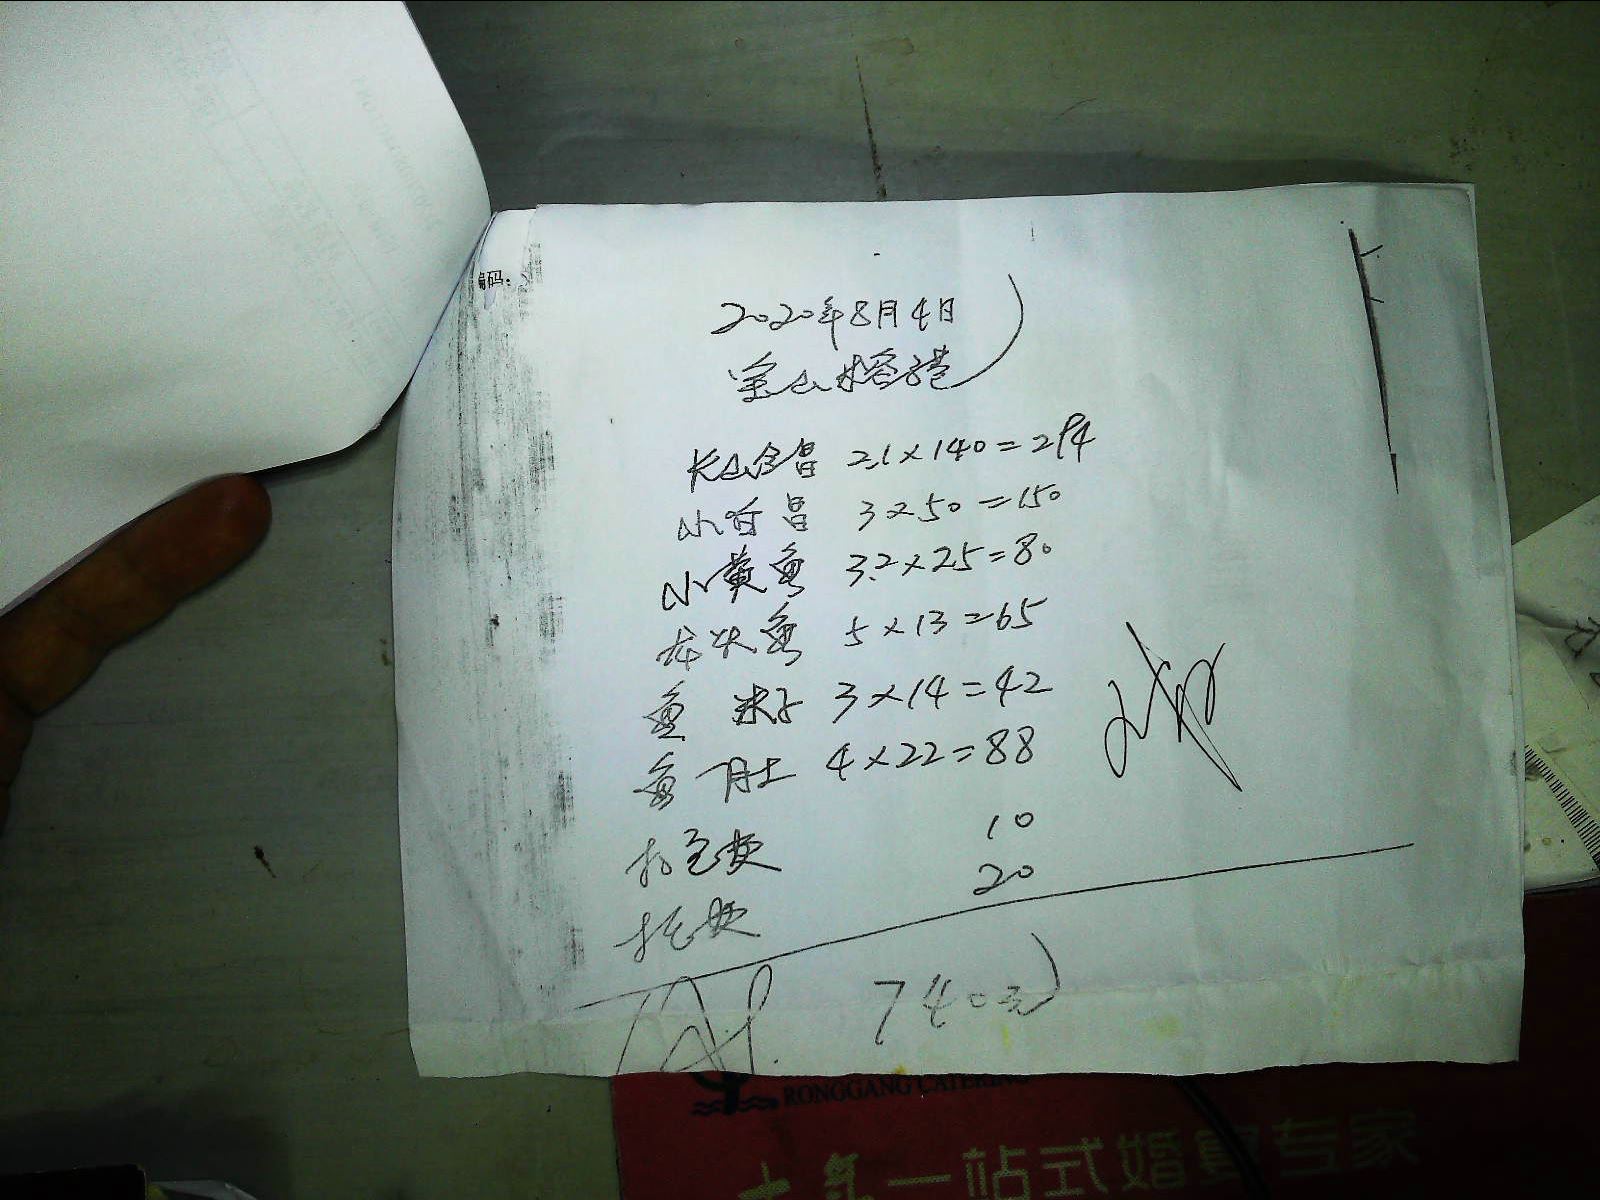 编码：
2020年8月4日
宝山杨港
长山合昌 2.1×140=294
小合昌 3×50=150
小黄鱼 3.2×25=80
龙头鱼 5×13=65
鱼籽 3×14=42
鱼肚 4×22=88
打包费 10
托费 20
740元
RONGGANG CATERING
一站式婚宴专家